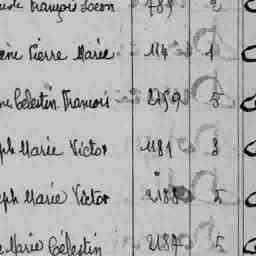 François Lacon 789 2
Pierre Marie 114 1
Célestin François 2759 5
ph Marie Victor 1181 3
eph Marie Victor 2188 5
Marie Célestin 2187 5